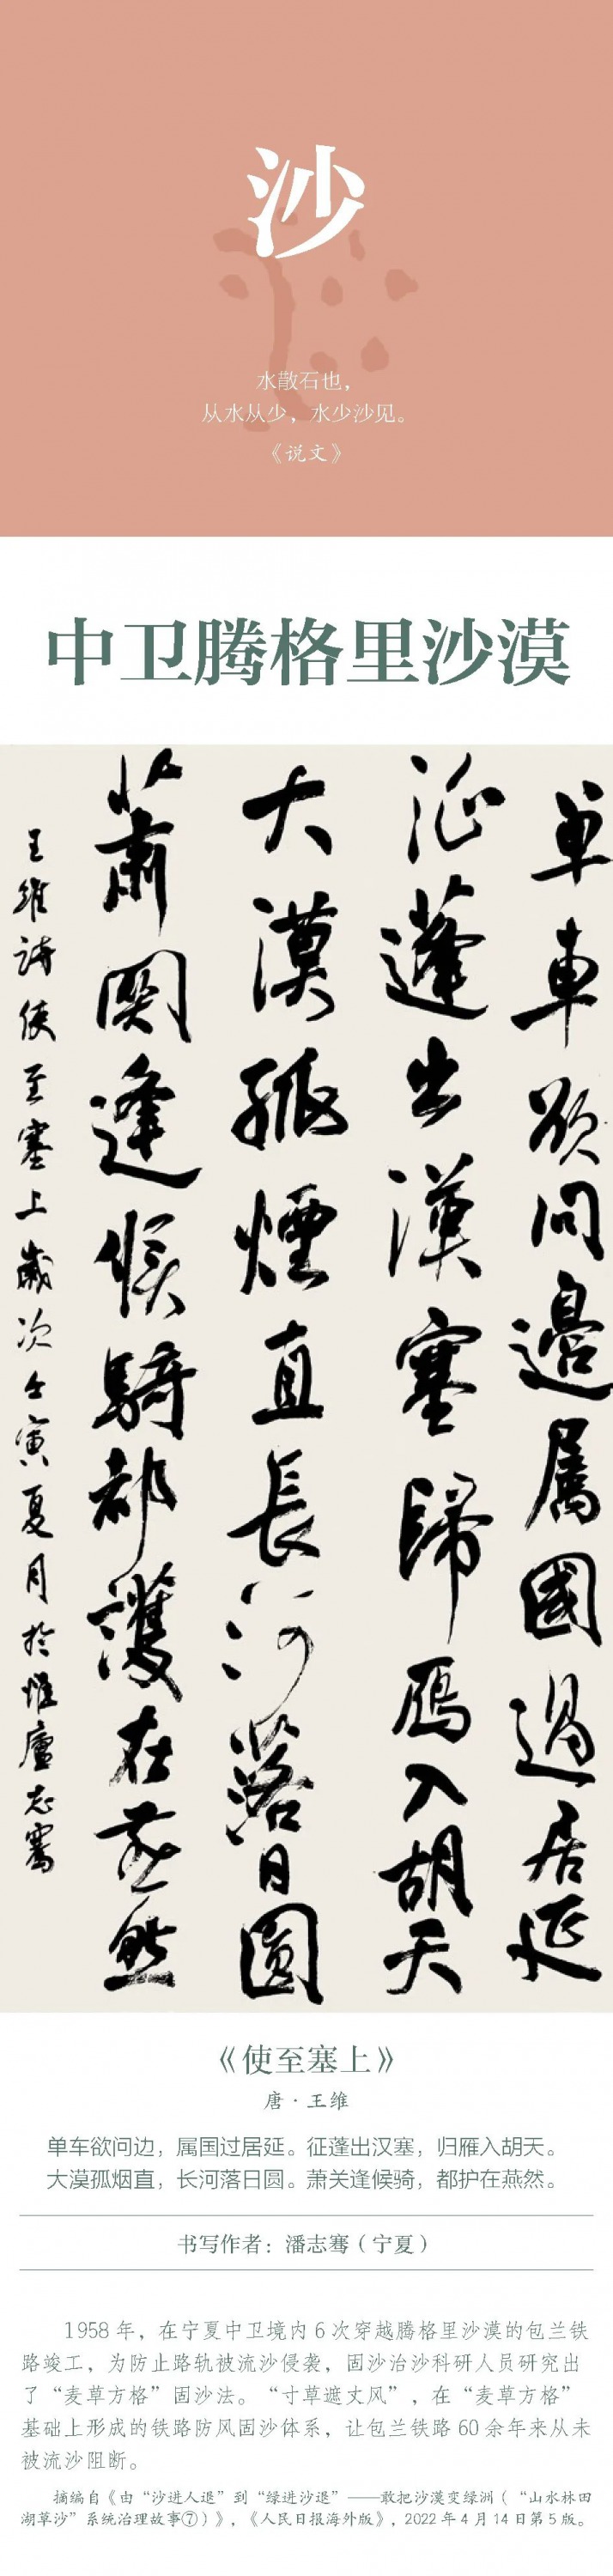 沙
水散石也，
从水从少，水少沙见。
《说文》
中卫腾格里沙漠
单車欲问邊属國過居延
征蓬出漢塞歸雁入胡天
大漠孤煙直長河落日圓
蕭関逢候騎都護在燕然
王維诗使至塞上歲次壬寅夏月於惟廬志骞
《使至塞上》
唐·王维
单车欲问边，属国过居延。征蓬出汉塞，归雁入胡天。
大漠孤烟直，长河落日圆。萧关逢候骑，都护在燕然。
书写作者：潘志骞（宁夏）
1958年，在宁夏中卫境内6次穿越腾格里沙漠的包兰铁
路竣工，为防止路轨被流沙侵袭，固沙治沙科研人员研究出
了“麦草方格”固沙法。“寸草遮丈风”，在“麦草方格”
基础上形成的铁路防风固沙体系，让包兰铁路60余年来从未
被流沙阻断。
摘编自《由“沙进人退”到“绿进沙退”——敢把沙漠变绿洲（“山水林田
湖草沙”系统治理故事⑦）》，《人民日报海外版》，2022年4月14日第5版。